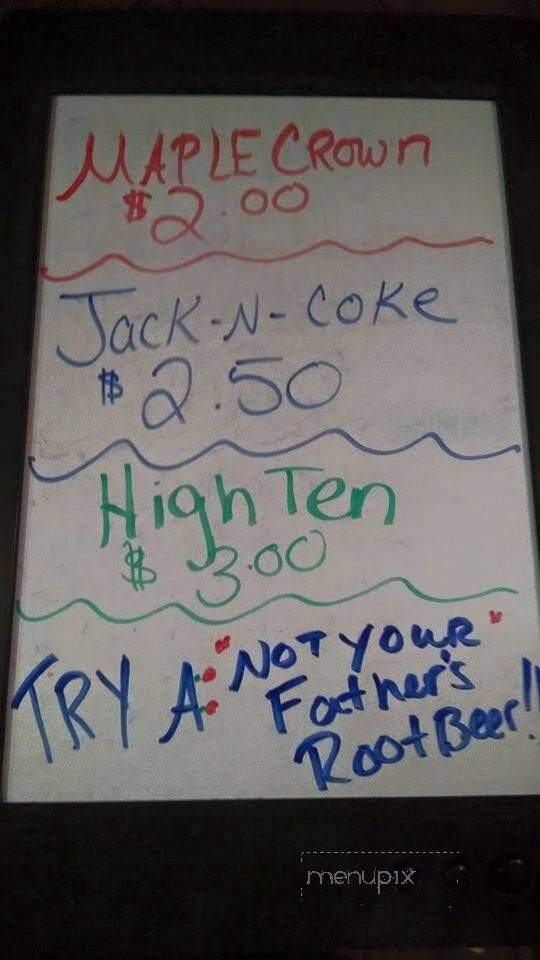 MAPLE CROWN
$2.00
JACK-N-COKE
$2.50
High Ten
$3.00
TRY A: "NOT YOUR"
Father's
Root Beer!!
menupix